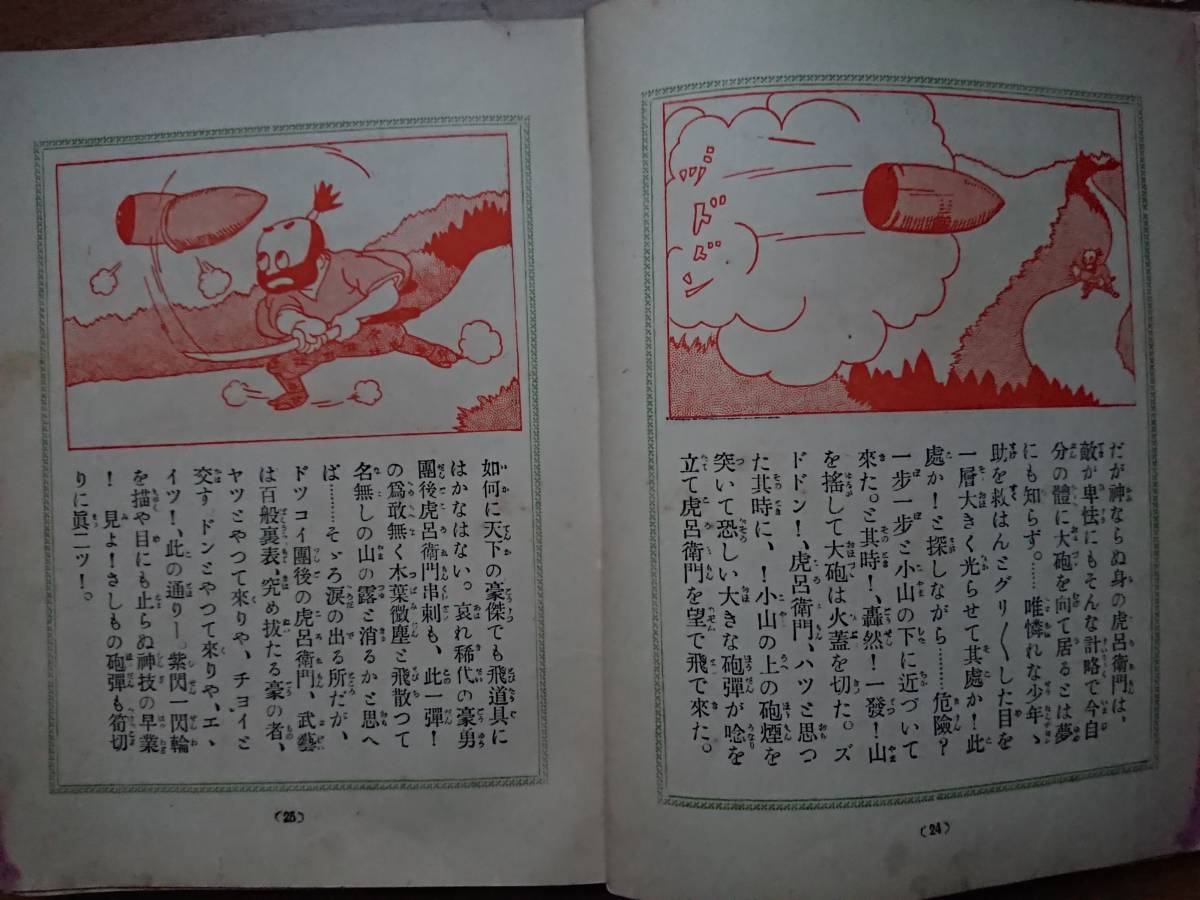 ヅドドン
だが神ならぬ身の虎呂衛門は、
敵が卑怯にもそんな計略で今自
分の體に大砲を向て居るとは夢
にも知らず。……唯憐れな少年、
助を救はんとグリ〱した目を
一層大きく光らせて其處か！此
處か！と探しながら………危險？
一步一步と小山の下に近づいて
來た。と其時！、轟然！一發！山
を搖して大砲は火蓋を切た。ズ
ドドン！、虎呂衛門、ハツと思つ
た其時に、！小山の上の砲煙を
突いて恐しい大きな砲彈が唸を
立て虎呂衛門を望で飛で來た。
(24)
如何に天下の豪傑でも飛道具に
はかなはない。哀れ稀代の豪勇
團後虎呂衛門串刺も、此一彈！
の爲敢無く木葉微塵と飛散つて
名無しの山の露と消るかと思へ
ば………そゞろ淚の出る所だが、
ドツコイ團後の虎呂衛門、武藝
は百般裏表、究め拔たる豪の者、
ヤツとやつて來りや、チヨイと
交す ドンとやつて來りや、エ、
イツ！、此の通り—。紫閃一閃輪
を描や目にも止らぬ神技の早業
！ 見よ！さしもの砲彈も筍切
りに眞二ツ！。
(25)